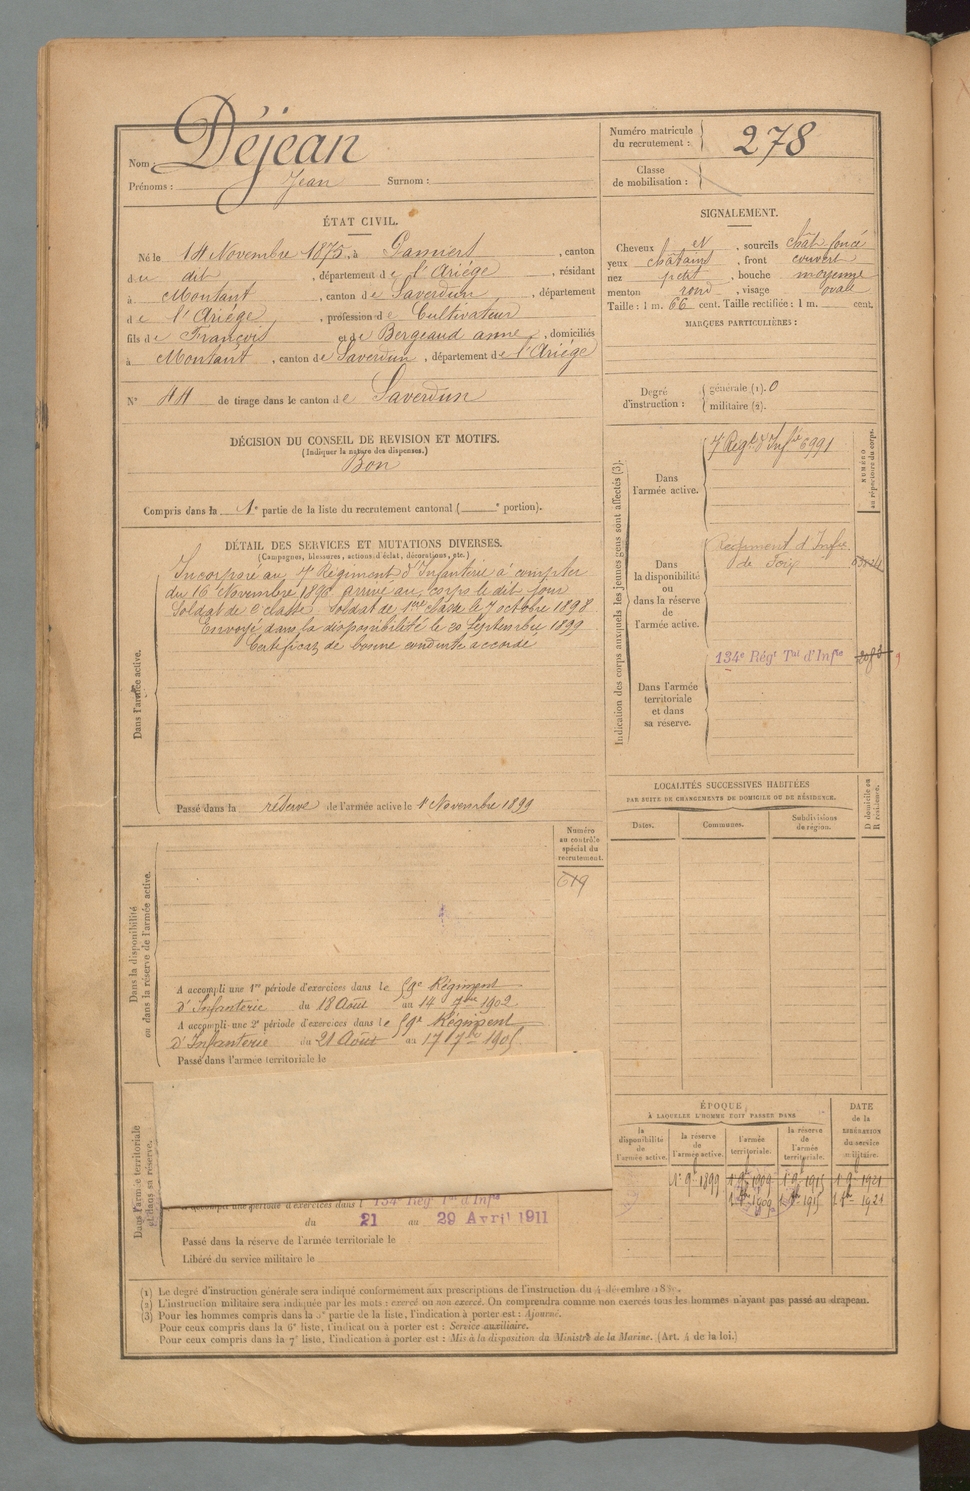 Nom : Déjean
Prénoms : Jean Surnom :
Numéro matricule
du recrutement : 278
Classe
de mobilisation :
ÉTAT CIVIL.
Né le 14 Novembre 1875, à Pamiers, canton
du dit, département de l'Ariége, résidant
à Montaut, canton de Saverdun, département
de l'Ariége, profession de Cultivateur
fils de François et de Bergeaud anne, domiciliés
à Montaut, canton de Saverdun, département de l'Ariége
N° 44 de tirage dans le canton de Saverdun
DÉCISION DU CONSEIL DE REVISION ET MOTIFS.
(Indiquer la nature des dispenses.)
Bon
Compris dans la 1e partie de la liste du recrutement cantonal ( e portion).
SIGNALEMENT.
Cheveux et, sourcils chât. foncé
yeux châtains, front couvert
nez petit, bouche moyenne
menton rond, visage ovale
Taille : 1 m. 66 cent. Taille rectifiée : 1 m. cent.
MARQUES PARTICULIÈRES :
Degré
d'instruction :
générale (1). 0
militaire (2).
DÉTAIL DES SERVICES ET MUTATIONS DIVERSES.
(Campagnes, blessures, actions d'éclat, décorations, etc.)
Dans l'armée active.
Incorporé au 7e Régiment d'Infanterie à compter
du 16 Novembre 1896, arrivé au corps le dit jour
Soldat de 2e classe. Soldat de 1ère classe le 7 octobre 1898
Envoyé dans la disponibilité le 20 Septembre 1899
Certificat de bonne conduite accordé
Passé dans la réserve de l'armée active le 1er Novembre 1899
Indication des corps auxquels les jeunes gens sont affectés (3).
NUMÉRO
au répertoire du corps.
Dans
l'armée active.
7e Régt d'Infie 6991
Dans
la disponibilité
ou
dans la réserve
de
l'armée active.
Régiment d'Infie
de Foix
Dans l'armée
territoriale
et dans
sa réserve.
134e Régt Tal d'Infie
LOCALITÉS SUCCESSIVES HABITÉES
PAR SUITE DE CHANGEMENTS DE DOMICILE OU DE RÉSIDENCE.
D domicile ou
R résidence.
Dates. Communes. Subdivisions
de région.
Dans la disponibilité
ou dans la réserve de l'armée active.
Numéro
au contrôle
spécial du
recrutement.
619
A accompli une 1re période d'exercices dans le 59e Régiment
d'Infanterie du 18 Août au 14 7bre 1902
A accompli une 2e période d'exercices dans le 59e Régiment
d'Infanterie du 21 Août au 17 7bre 1905
Passé dans l'armée territoriale le
Dans l'armée territoriale
et dans sa réserve.
A accompli une période d'exercices dans l 134e Régt Tal d'Infie
du 21 au 29 Avril 1911
Passé dans la réserve de l'armée territoriale le
Libéré du service militaire le
ÉPOQUE
À LAQUELLE L'HOMME DOIT PASSER DANS
DATE
de la
LIBÉRATION
du service
militaire.
la
disponibilité
de
l'armée active.
la réserve
de
l'armée active.
l'armée
territoriale.
la réserve
de
l'armée
territoriale.
1er 9e 1899 1er 9e 1909 1er 9e 1915 1er 9e 1921
1909 1915 1921
(1) Le degré d'instruction générale sera indiqué conformément aux prescriptions de l'instruction du 4 décembre 1889.
(2) L'instruction militaire sera indiquée par les mots : exercé ou non exercé. On comprendra comme non exercés tous les hommes n'ayant pas passé au drapeau.
(3) Pour les hommes compris dans la 5e partie de la liste, l'indication à porter est : Ajourné.
Pour ceux compris dans la 6e liste, l'indication à porter est : Service auxiliaire.
Pour ceux compris dans la 7e liste, l'indication à porter est : Mis à la disposition du Ministre de la Marine. (Art. 4 de la loi.)